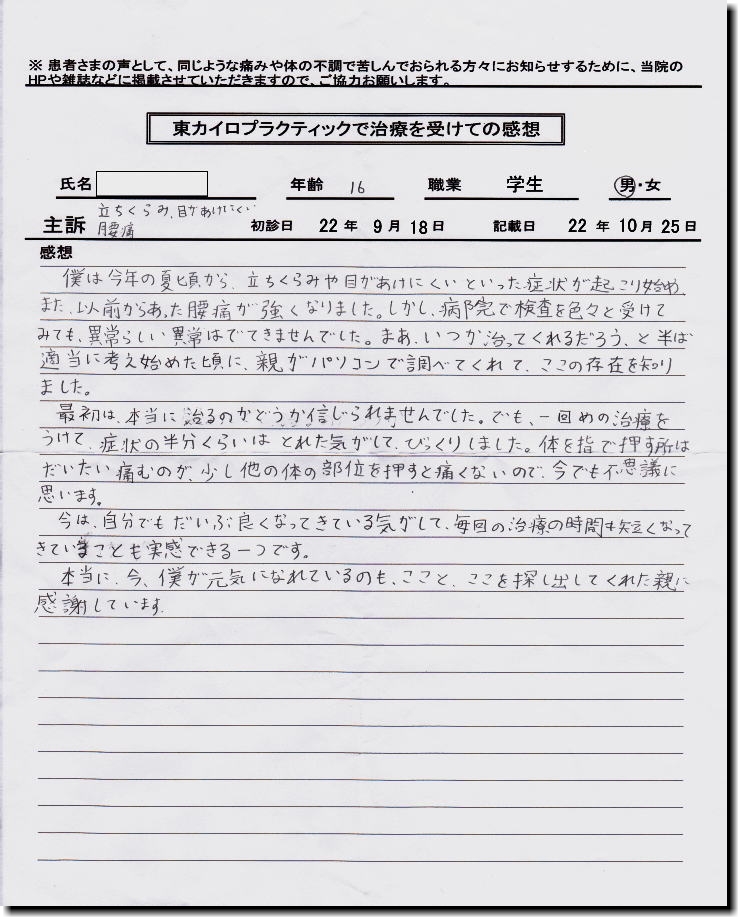 ※ 患者さまの声として、同じような痛みや体の不調で苦しんでおられる方々にお知らせするために、当院の
HPや雑誌などに掲載させていただきますので、ご協力お願いします。
東カイロプラクティックで治療を受けての感想
氏名 年齢 16 職業 学生 男・女
主訴 立ちくらみ、目があけにくい
腰痛 初診日 22 年 9 月 18 日 記載日 22 年 10 月 25 日
感想
僕は今年の夏頃から、立ちくらみや目があけにくいといった症状が起こり始め、
また、以前からあった腰痛が強くなりました。しかし、病院で検査を色々と受けて
みても、異常らしい異常はでてきませんでした。まあ、いつか治ってくれるだろう、と半ば
適当に考え始めた頃に、親がパソコンで調べてくれて、ここの存在を知り
ました。
最初は、本当に治るのかどうか信じられませんでした。でも、一回めの治療を
うけて、症状の半分くらいはとれた気がして、びっくりしました。体を指で押す所は
だいたい痛むのが、少し他の体の部位を押すと痛くないので、今でも不思議に
思います。
今は、自分でもだいぶ良くなってきている気がして、毎回の治療の時間も短くなって
きていることも実感できる一つです。
本当に、今、僕が元気になれているのも、ここと、ここを探し出してくれた親に
感謝しています。